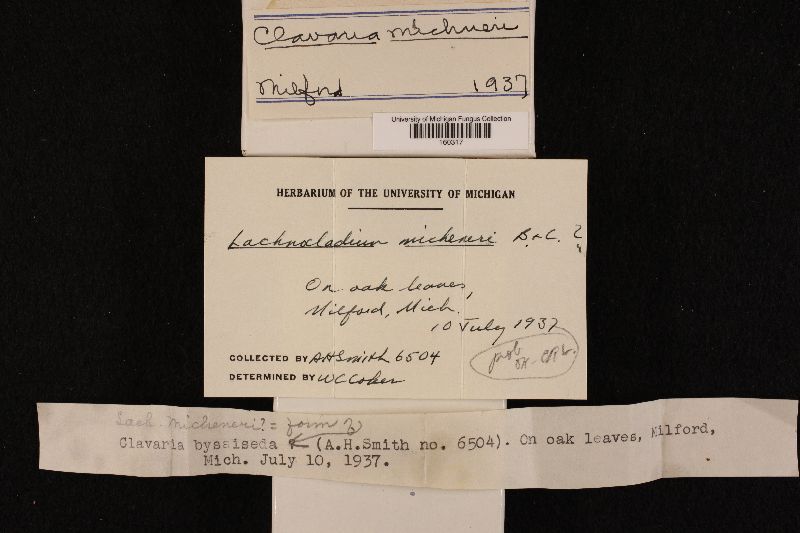 Clavaria micheneri
Milford 1937
University of Michigan Fungus Collection
160317
HERBARIUM OF THE UNIVERSITY OF MICHIGAN
Lachnocladium micheneri B.&C. ?
On oak leaves,
Milford, Mich.
10 July 1937
COLLECTED BY AHSmith 6504
DETERMINED BY WCCoker
prob
OK
Lach. micheneri? = form of
Clavaria byssiseda (A.H.Smith no. 6504). On oak leaves, Milford,
Mich. July 10, 1937.